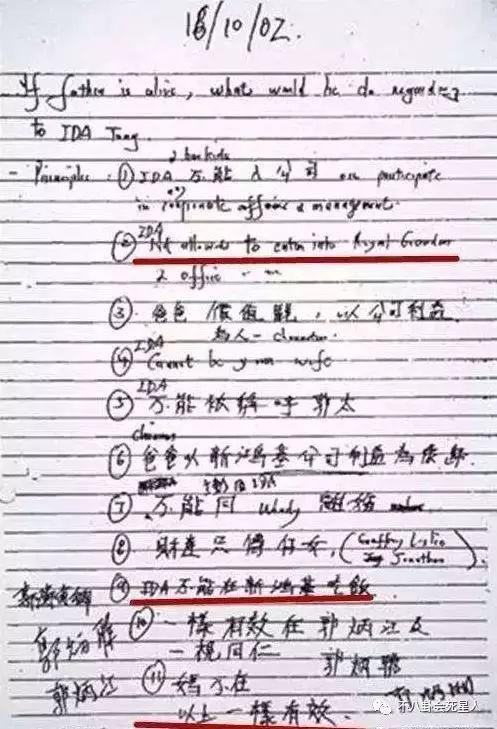 18/10/02.
If father is alive, what would he do regarding
to IDA Tang.
- Principles: ① IDA 不能入公司 or participate
in corporate affairs & management.
② IDA Not allowed to enter into Royal Garden
& office
③ 爸爸 價值觀, 以公司利益
為人 - character.
④ IDA Cannot be your wife
⑤ IDA 不能被稱呼郭太
⑥ 爸爸以新鴻基公司利益為
⑦ 不能同 Wendy 離婚
⑧ 財產只傳仔女, (Geoffrey Leslie Jonathan).
⑨ IDA 不能在新鴻基吃飯
⑩ 一樣有效在郭炳江及
一視同仁 郭炳聯
郭炳江
⑪ 媽不在
以上一樣有效.
不八卦会死星人